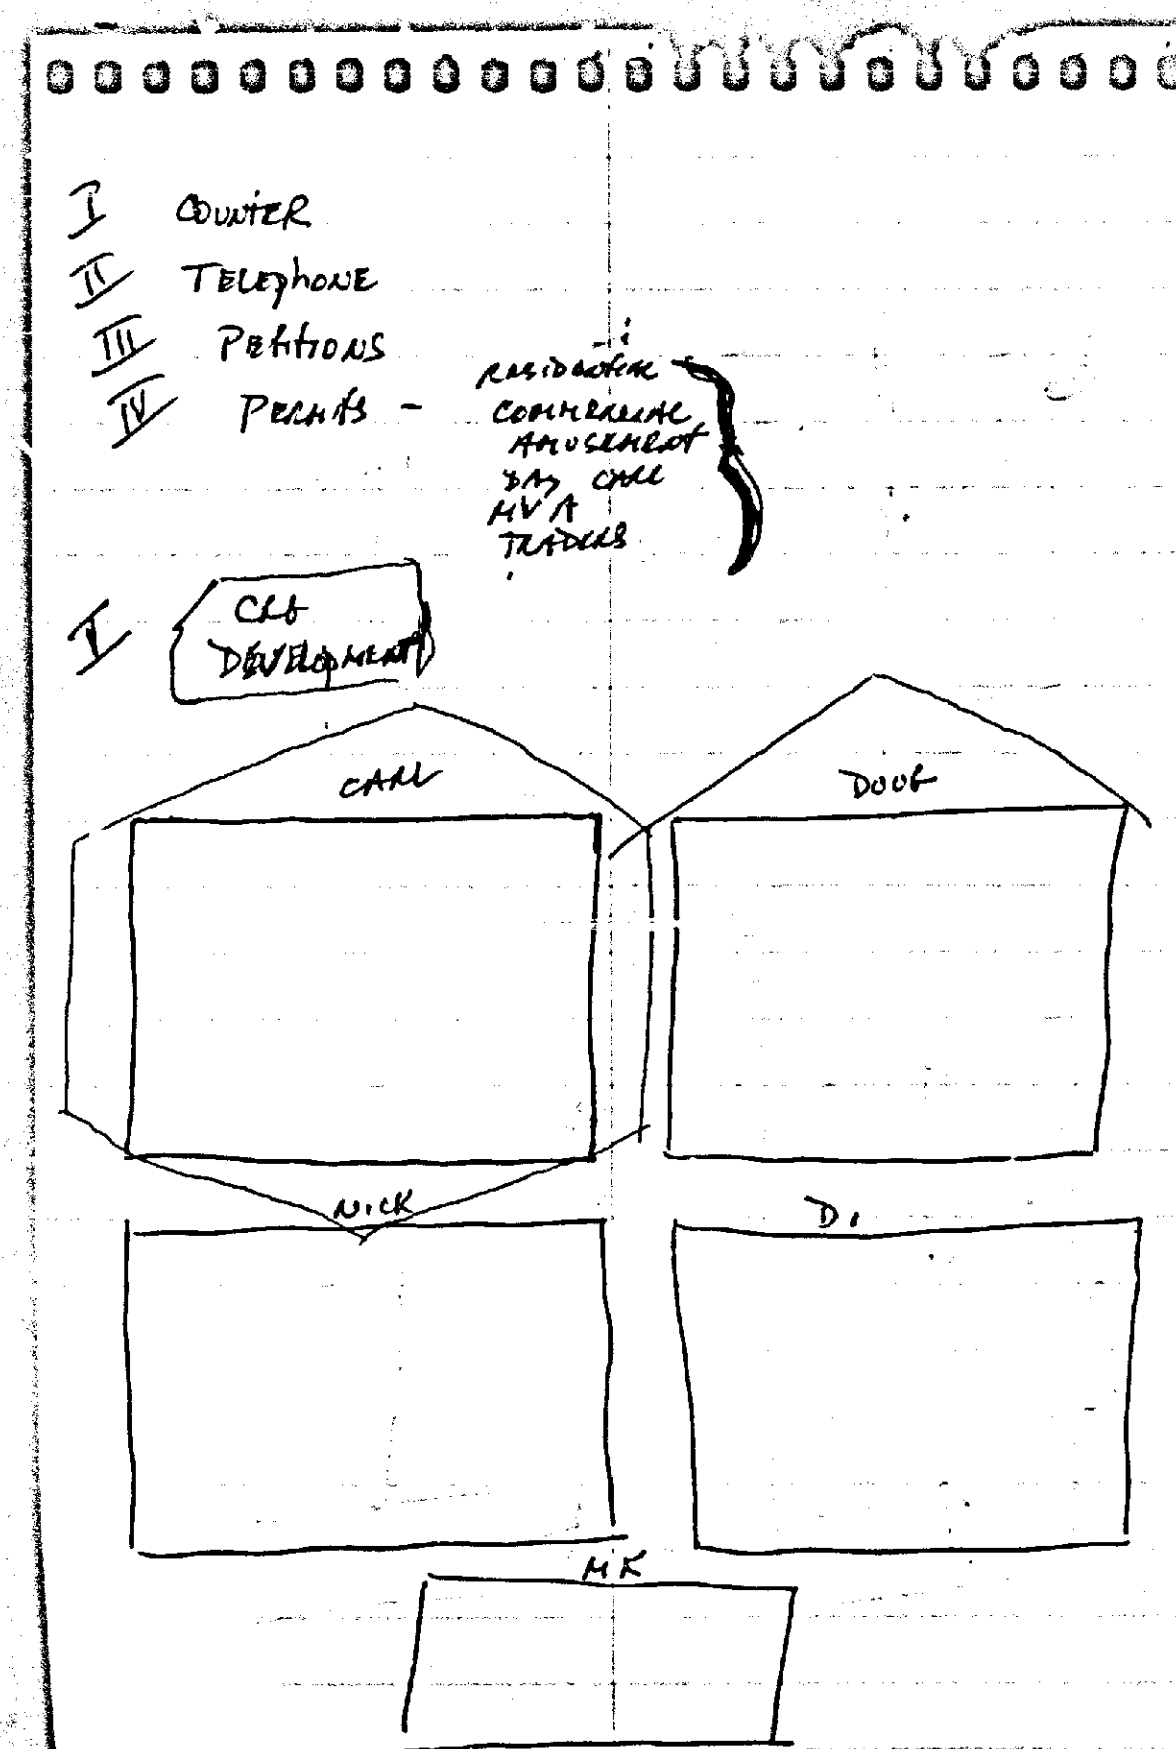 I COUNTER
II TELEPHONE
III PETITIONS
IV PERMITS - RESIDENTIAL
COMMERCIAL
AMUSEMENT
DAY CARE
MVA
TRADERS
V
DEVELOPMENT
CARL DOUG
NICK D.
MK